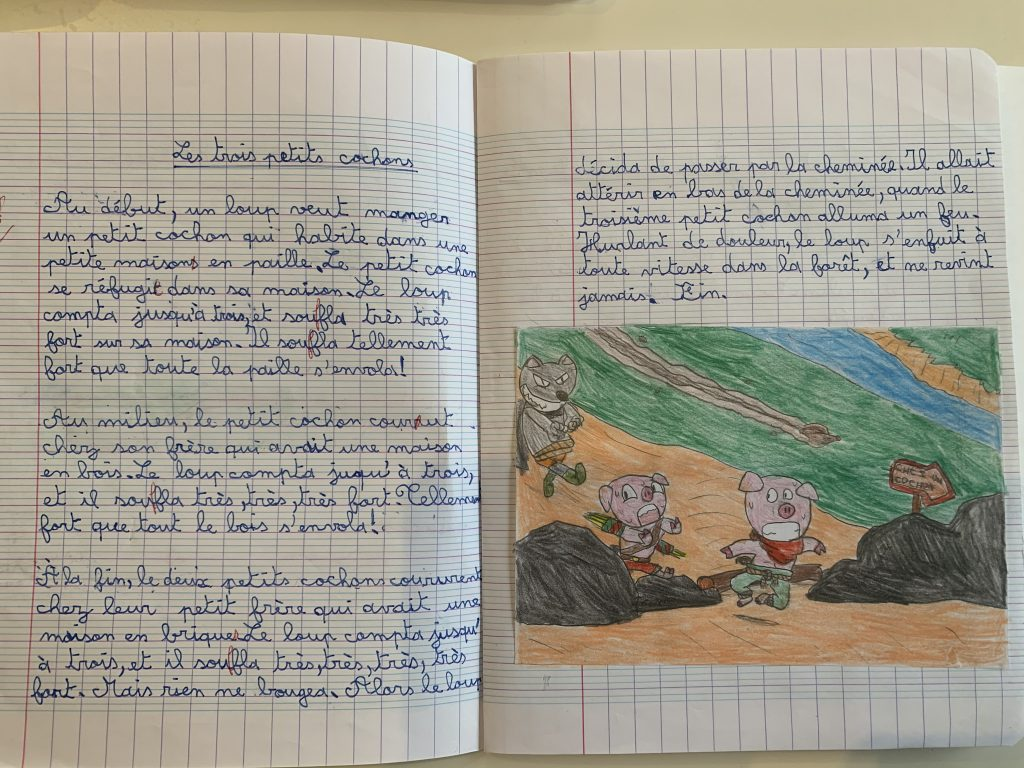 Les trois petits cochons
Au début, un loup veut manger
un petit cochon qui habite dans une
petite maison en paille. Le petit cochon
se réfugit dans sa maison. Le loup
compta jusqu'à trois, et souffla très très
fort sur sa maison. Il souffla tellement
fort que toute la paille s'envola!
Au milieu, le petit cochon courut
chez son frère qui avait une maison
en bois. Le loup compta juqu'à trois,
et il souffla très, très, très fort. Tellement
fort que tout le bois s'envola!
À la fin, le deux petits cochons coururent
chez leur petit frère qui avait une
maison en brique. Le loup compta jusqu'
à trois, et il souffla très, très, très, très
fort. Mais rien ne bougea. Alors le loup
décida de passer par la cheminée. Il allait
attérir en bas de la cheminée, quand le
troisième petit cochon alluma un feu.
Hurlant de douleur, le loup s'enfuit à
toute vitesse dans la forêt, et ne revint
jamais. Fin.
CHEZ
COCHON